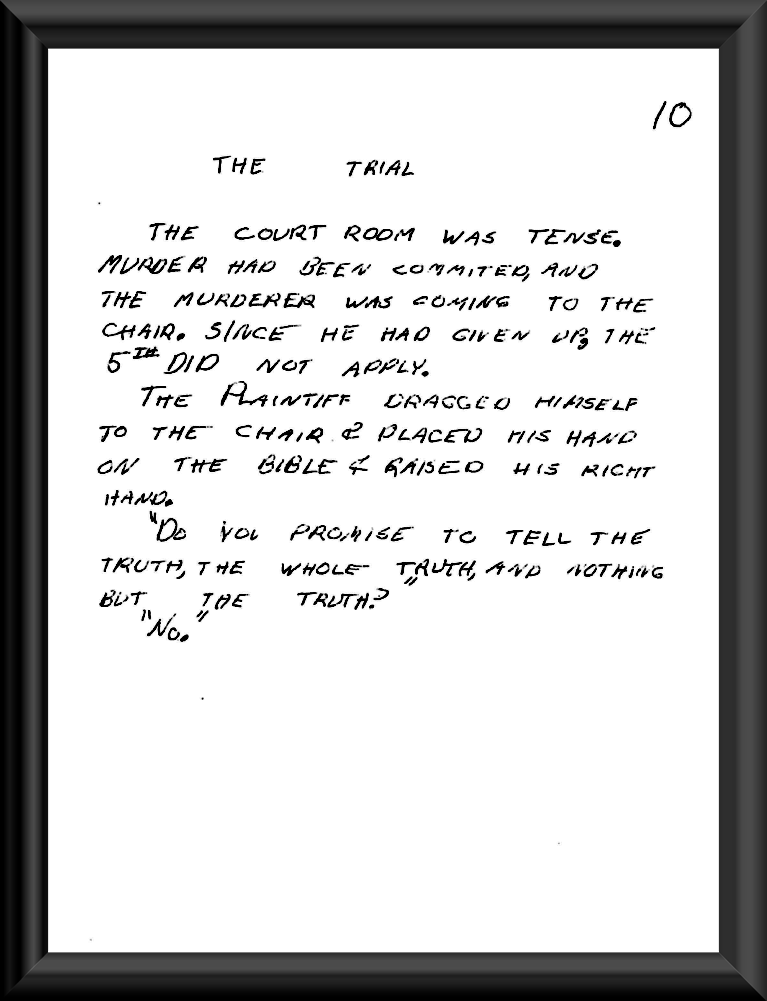 10
THE TRIAL
THE COURT ROOM WAS TENSE.
MURDER HAD BEEN COMMITED, AND
THE MURDERER WAS COMING TO THE
CHAIR. SINCE HE HAD GIVEN UP, THE
5TH DID NOT APPLY.
THE PLAINTIFF DRAGGED HIMSELF
TO THE CHAIR & PLACED HIS HAND
ON THE BIBLE & RAISED HIS RIGHT
HAND.
"DO YOU PROMISE TO TELL THE
TRUTH, THE WHOLE TRUTH, AND NOTHING
BUT THE TRUTH?"
"NO."